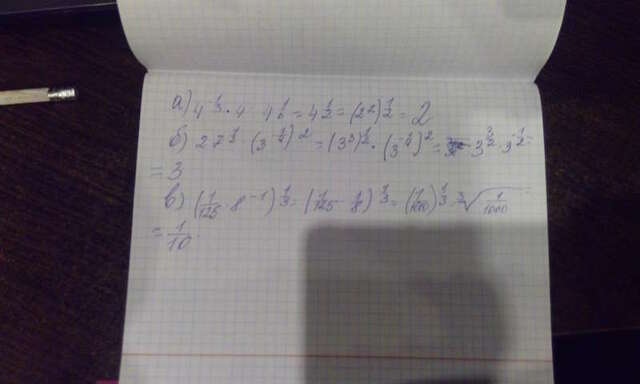 а) 4^(1/3) · 4 4^(1/6) = 4^(1/2) = (2²)^(1/2) = 2
б) 27^(1/2) · (3^(-1/4))² = (3³)^(1/2) · (3^(-1/4))² = 3^(3/2) · 3^(-1/2) =
= 3
в) (1/125 · 8^(-1))^(1/3) = (1/125 · 1/8)^(1/3) = (1/1000)^(1/3) = ³√(1/1000) =
= 1/10